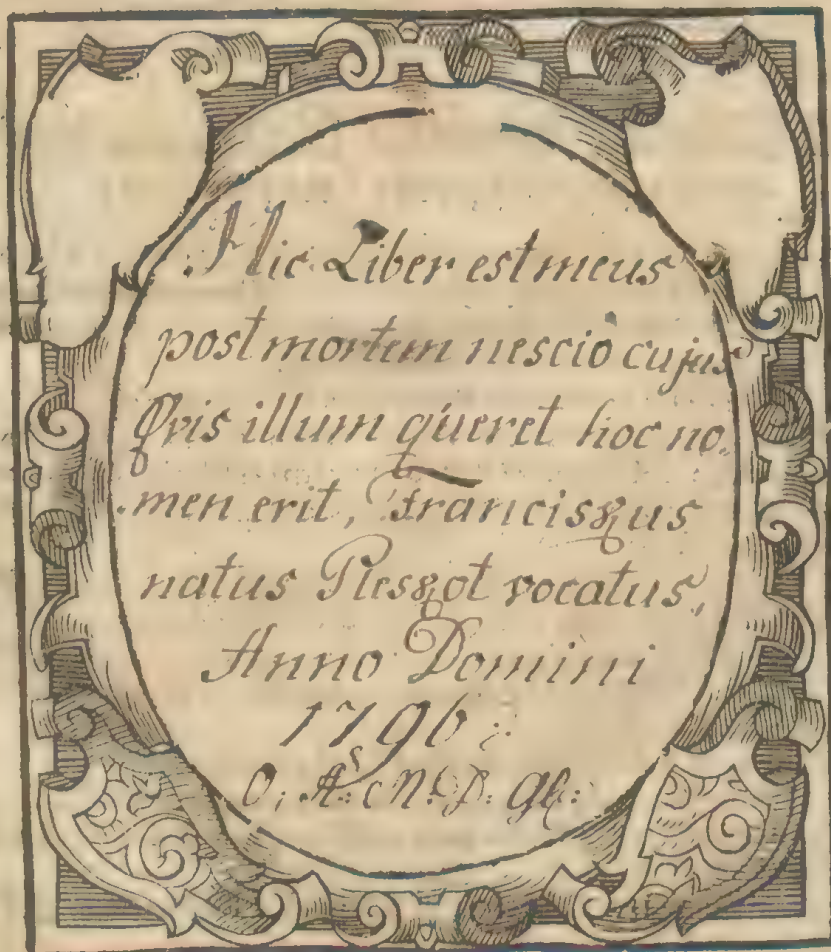 Hic Liber est meus
post mortem nescio cujus
Qvis illum qveret hoc no
men erit, Franciskus
natus Pleskot vocatus,
Anno Domini
1796:
O: A: M: D: gl: